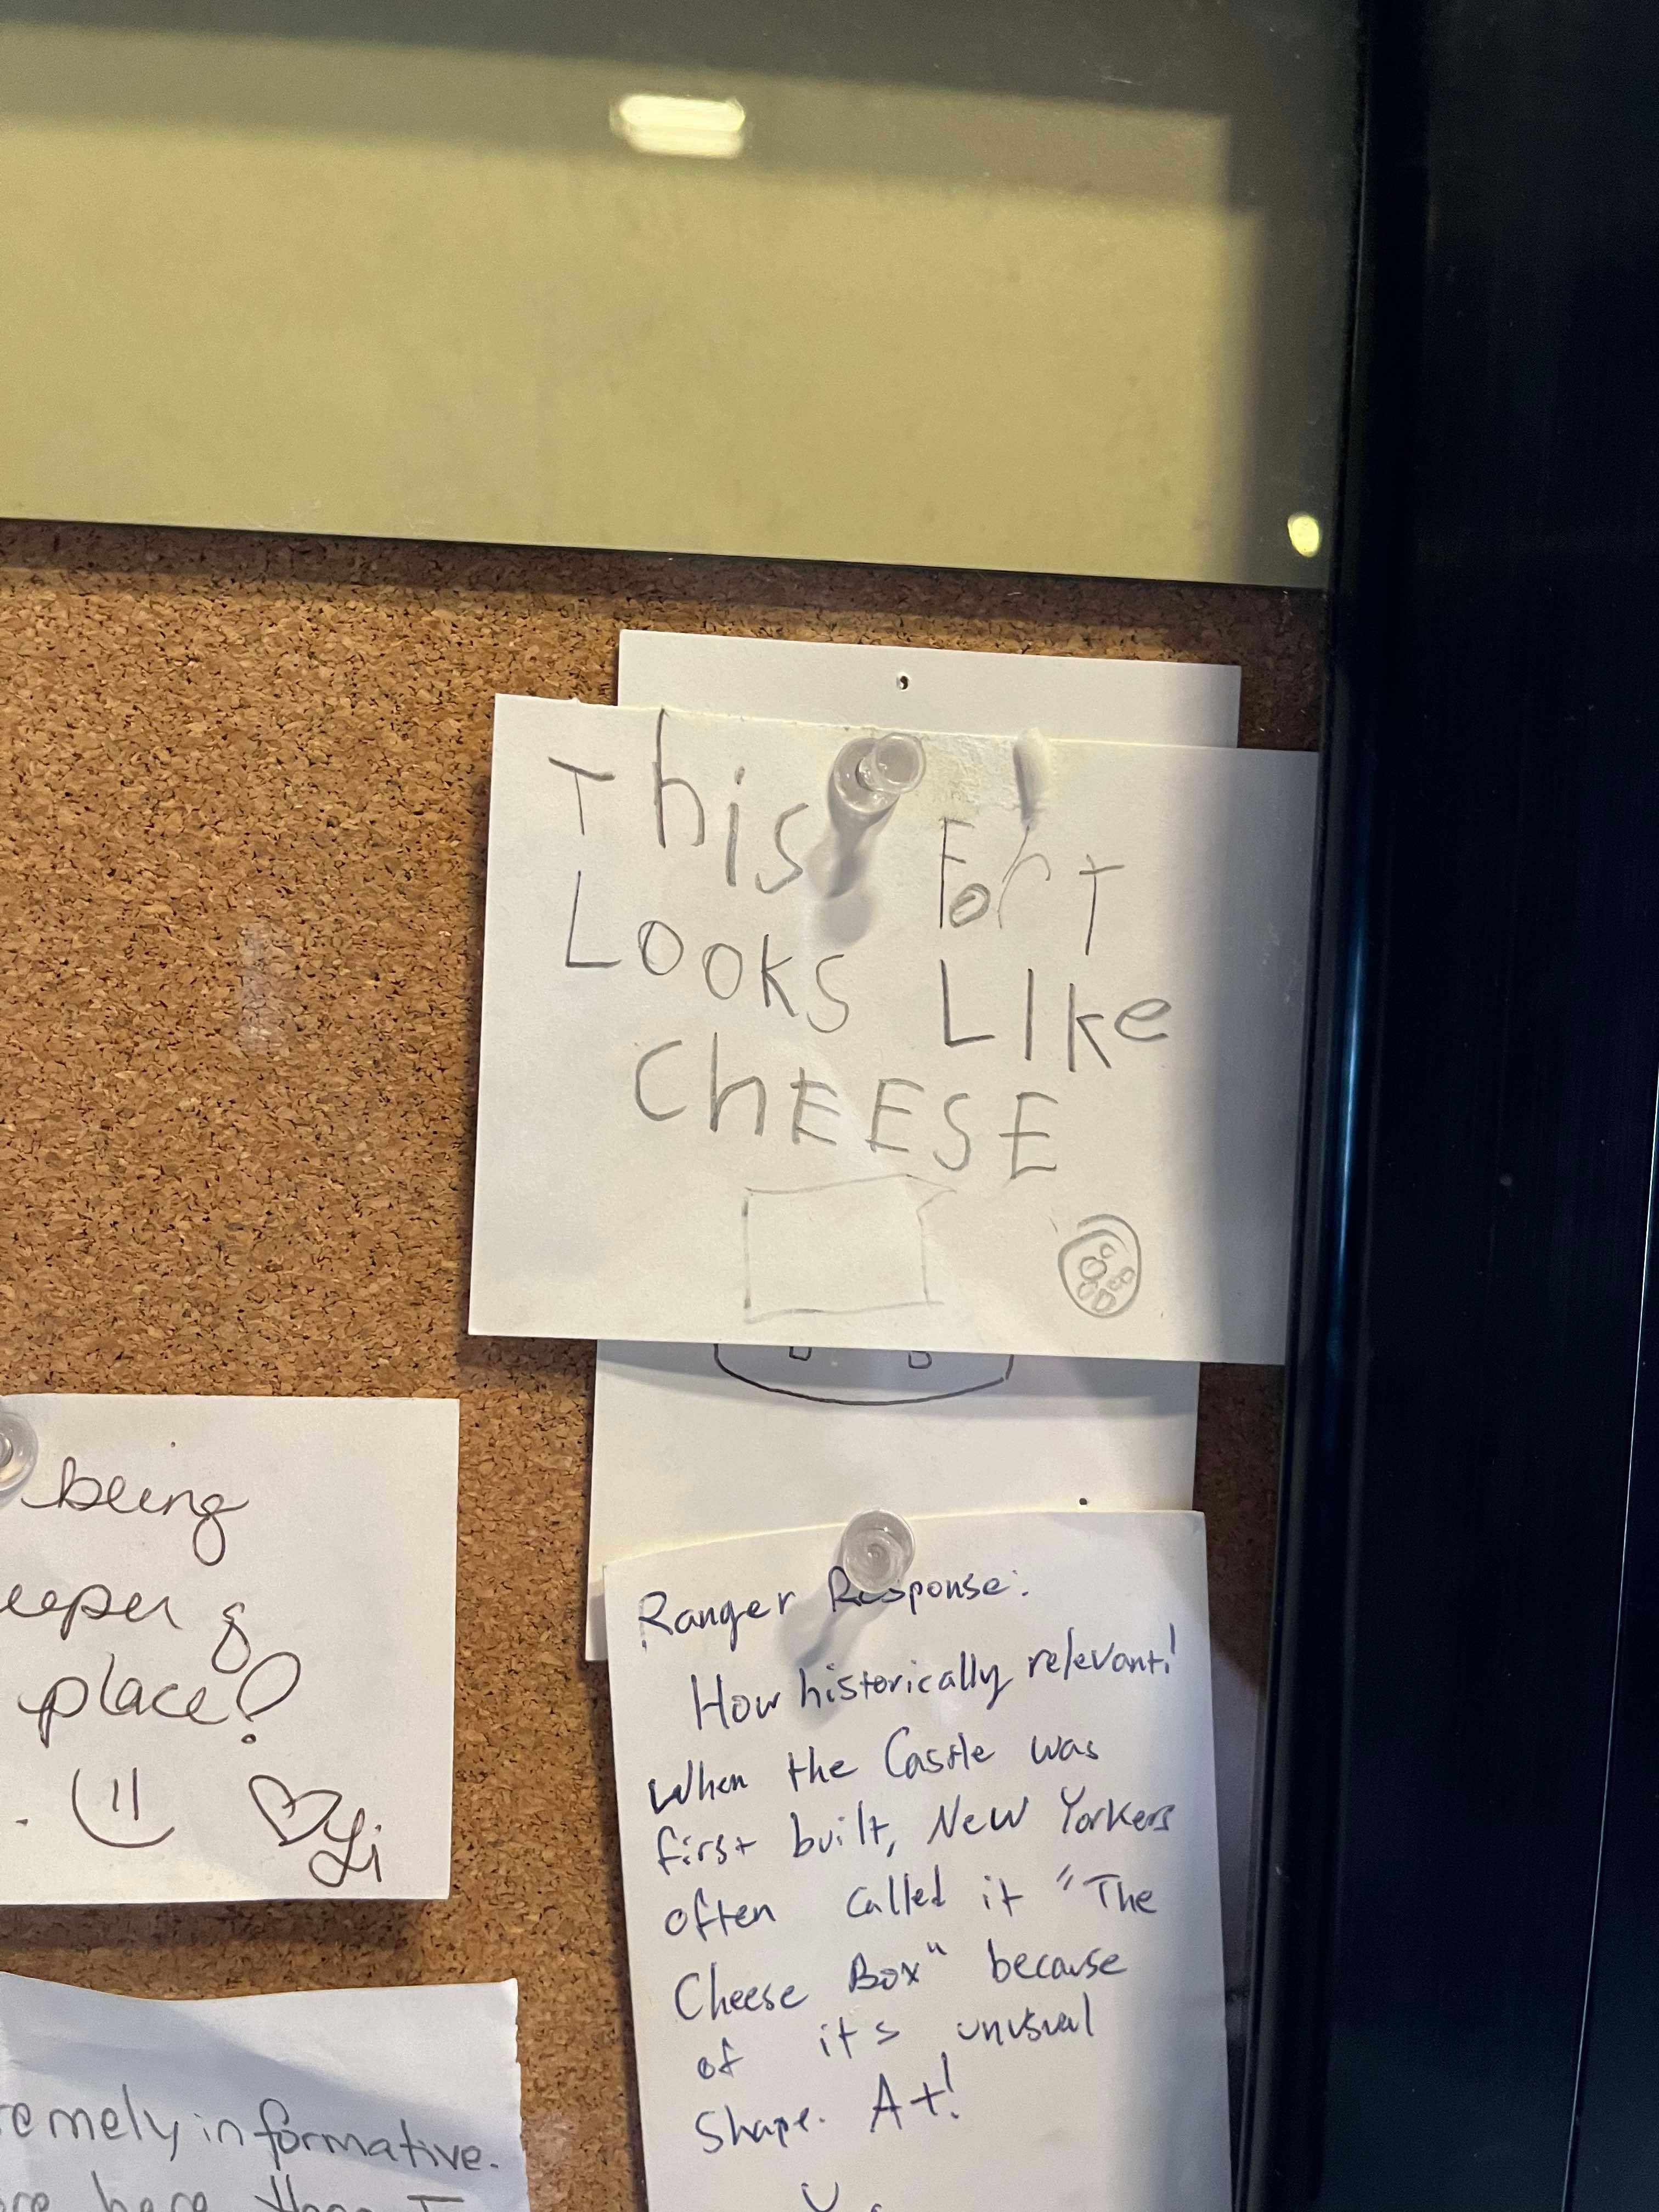 This ForT
LOOKS LIke
ChEESE
being
place!
Li
Ranger Response:
How historically relevant!
When the Castle was
first built, New Yorkers
often called it "The
Cheese Box" because
of it's unusual
Shape. A+!
informative.
here